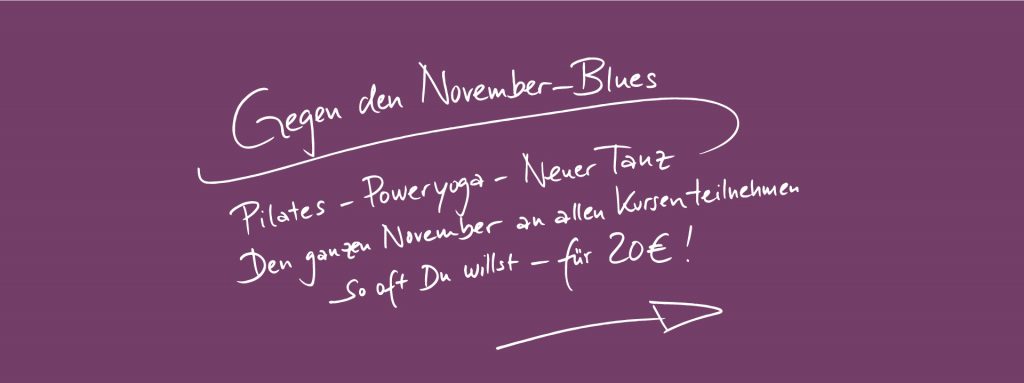 Gegen den November-Blues
Pilates - Poweryoga - Neuer Tanz
Den ganzen November an allen Kursen teilnehmen
So oft Du willst - für 20€!